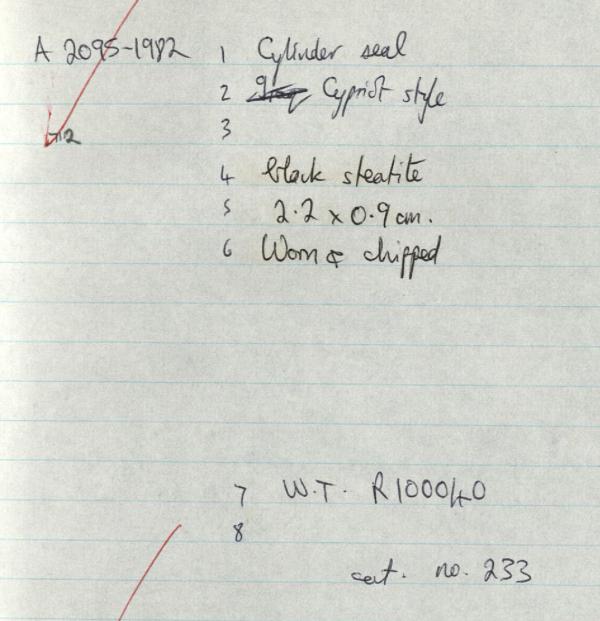 A 2095-1982 1 Cylinder seal
2 Cypriot style
3
4 black steatite
5 2.2 x 0.9 cm.
6 Worn & chipped
7 W.T. R100040
8
cat. no. 233